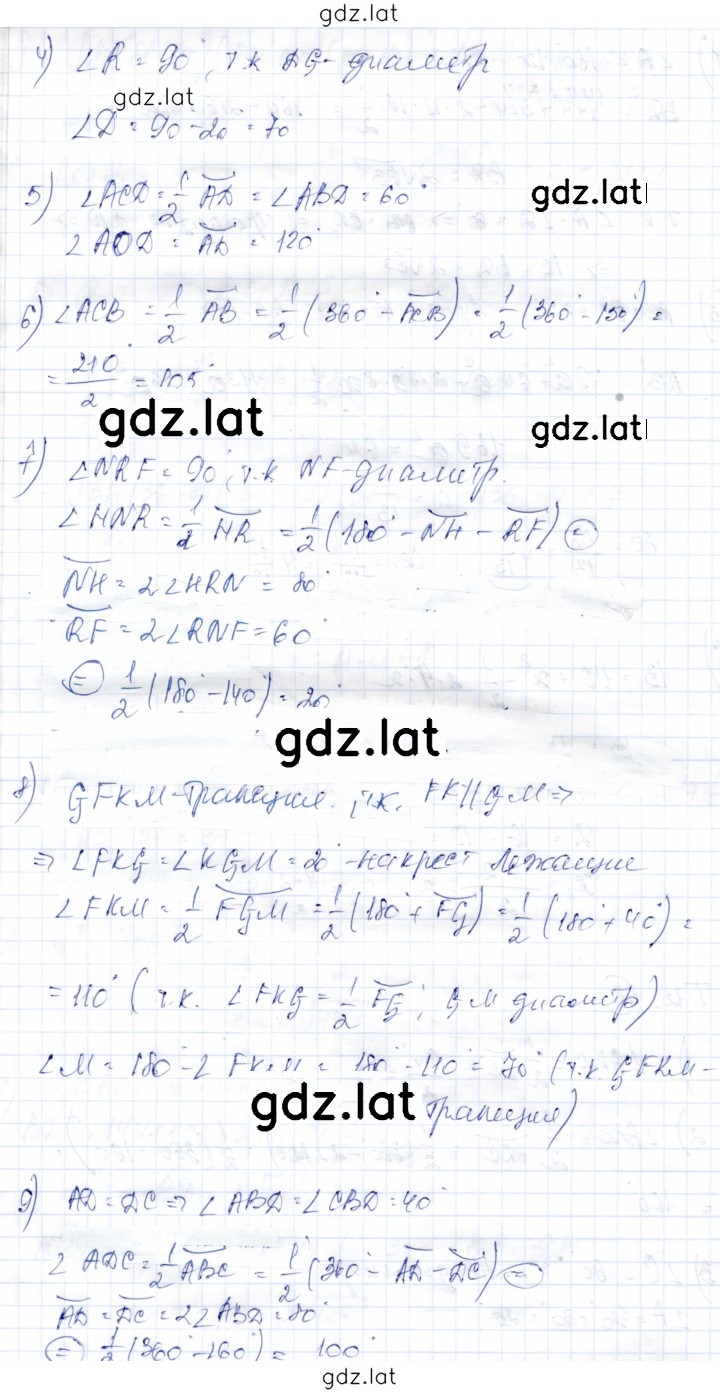 gdz.lat
4) ∠R = 90°, т.к DG - диаметр
gdz.lat
∠D = 90 - 20 = 70°
5) ∠ACD = 1/2 AD = ∠ABD = 60°
gdz.lat
∠AOD = AD = 120°
6) ∠ACB = 1/2 AB = 1/2 (360° - ACB) = 1/2 (360° - 150°) =
= 210°/2 = 105°
gdz.lat
gdz.lat
7) ∠NRF = 90°, т.к NF - диаметр.
∠HNR = 1/2 HR = 1/2 (180° - NH - RF) =
NH = 2∠HRN = 80°
RF = 2∠RNF = 60°
= 1/2 (180° - 140°) = 20°
gdz.lat
8) GFKM - трапеция, т.к. FK || GM ⇒
⇒ ∠FKG = ∠KGM = 20° - накрест лежащие
∠FKM = 1/2 FGM = 1/2 (180° + FG) = 1/2 (180° + 40°) =
= 110° (т.к. ∠FKG = 1/2 FG, GM диаметр)
∠M = 180° - ∠FKM = 180° - 110° = 70° (т.к. GFKM -
gdz.lat
трапеция)
9) AD = DC ⇒ ∠ABD = ∠CBD = 40°
∠ADC = 1/2 ABC = 1/2 (360° - AD - DC) =
AD = DC = 2∠ABD = 80°
= 1/2 (360° - 160°) = 100°
gdz.lat